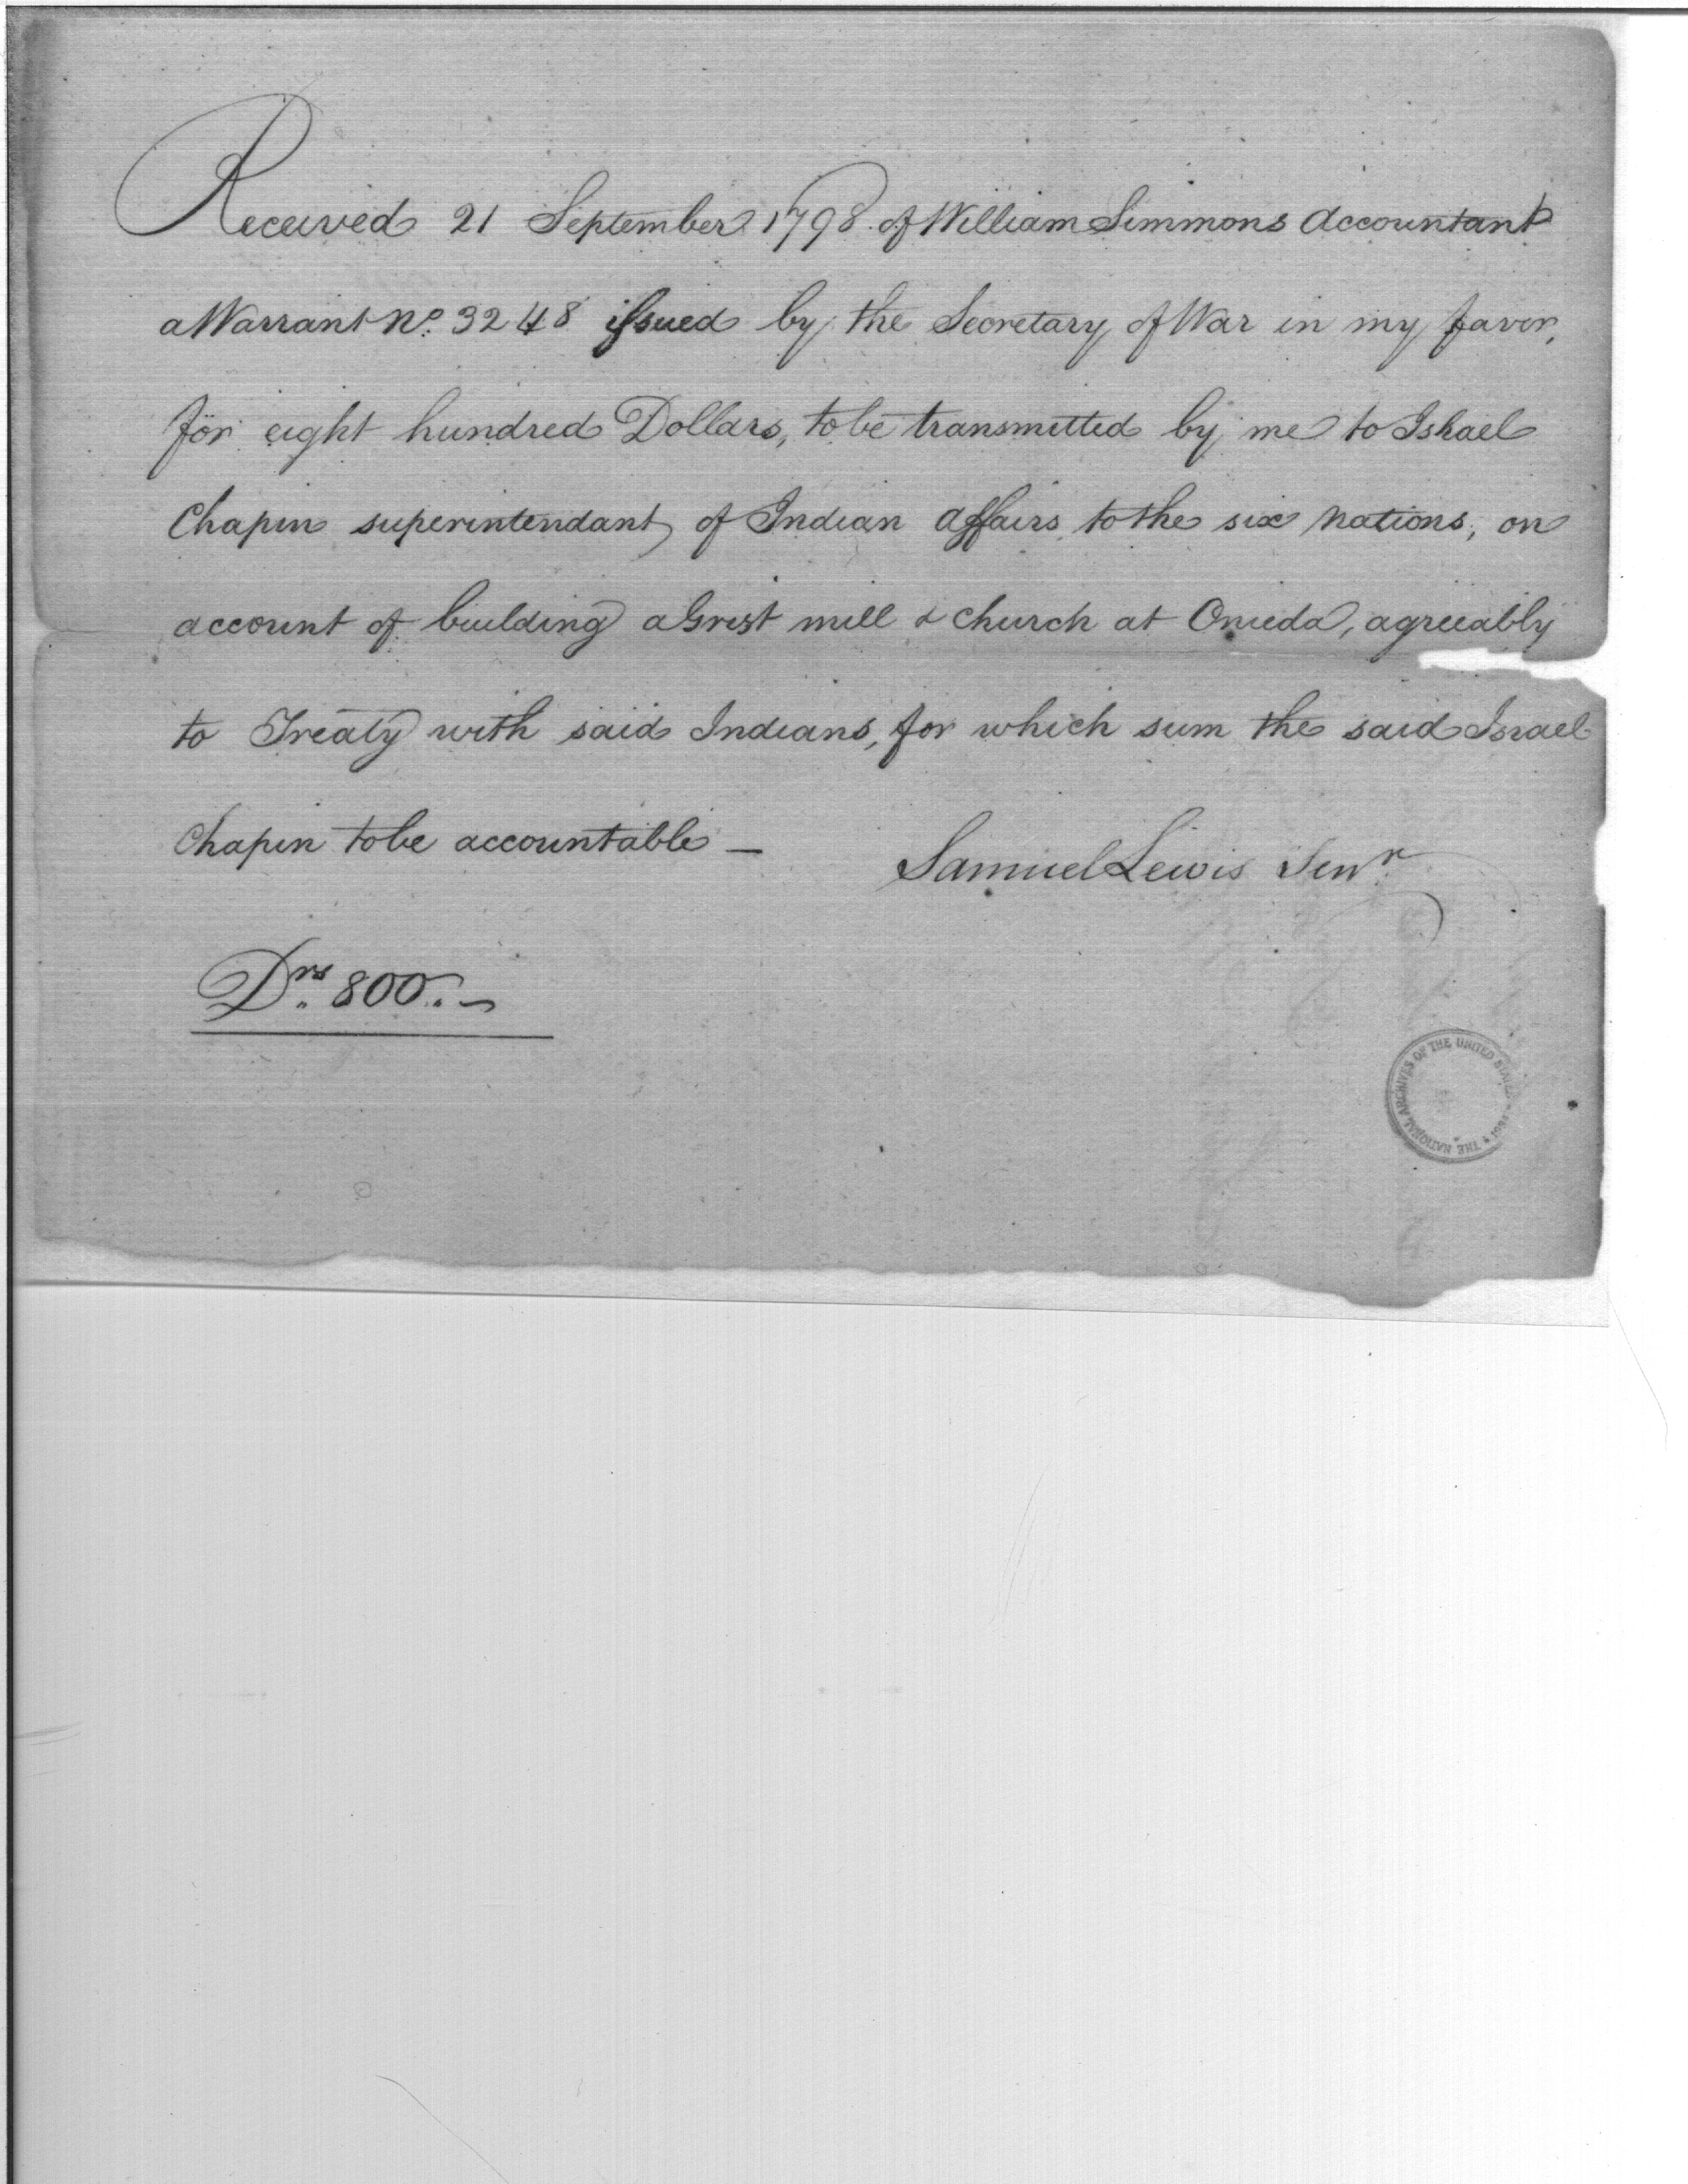 Received 21 September 1798 of William Simmons Accountant
a Warrant No. 3248 issued by the Secretary of War in my favor,
for eight hundred Dollars, to be transmitted by me to Ishael
Chapin superintendant of Indian Affairs to the six nations, on
account of building a Grist mill & Church at Onieda, agreeably
to Treaty with said Indians, for which sum the said Israel
Chapin to be accountable —
Samuel Lewis Senr.
Drs. 800.. —
THE NATIONAL ARCHIVES OF THE UNITED STATES * 1934 *